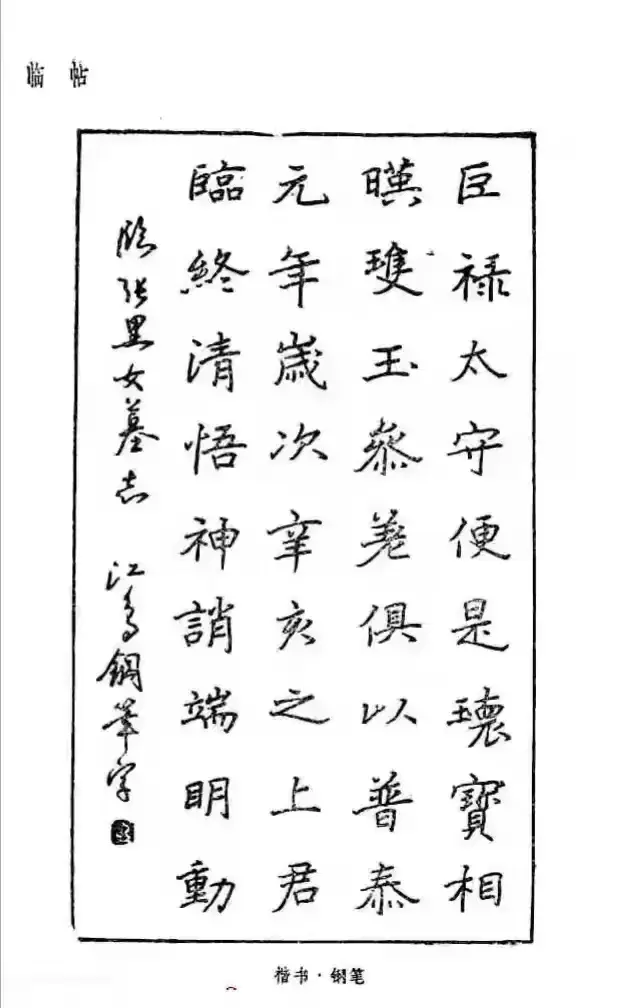 临 帖
巨禄太守便是瓌寶相
暎瓊玉叅差俱以普泰
元年歲次辛亥之上君
臨終清悟神誚端明動
临张黑女墓志 江 鋼筆字
楷书·钢笔